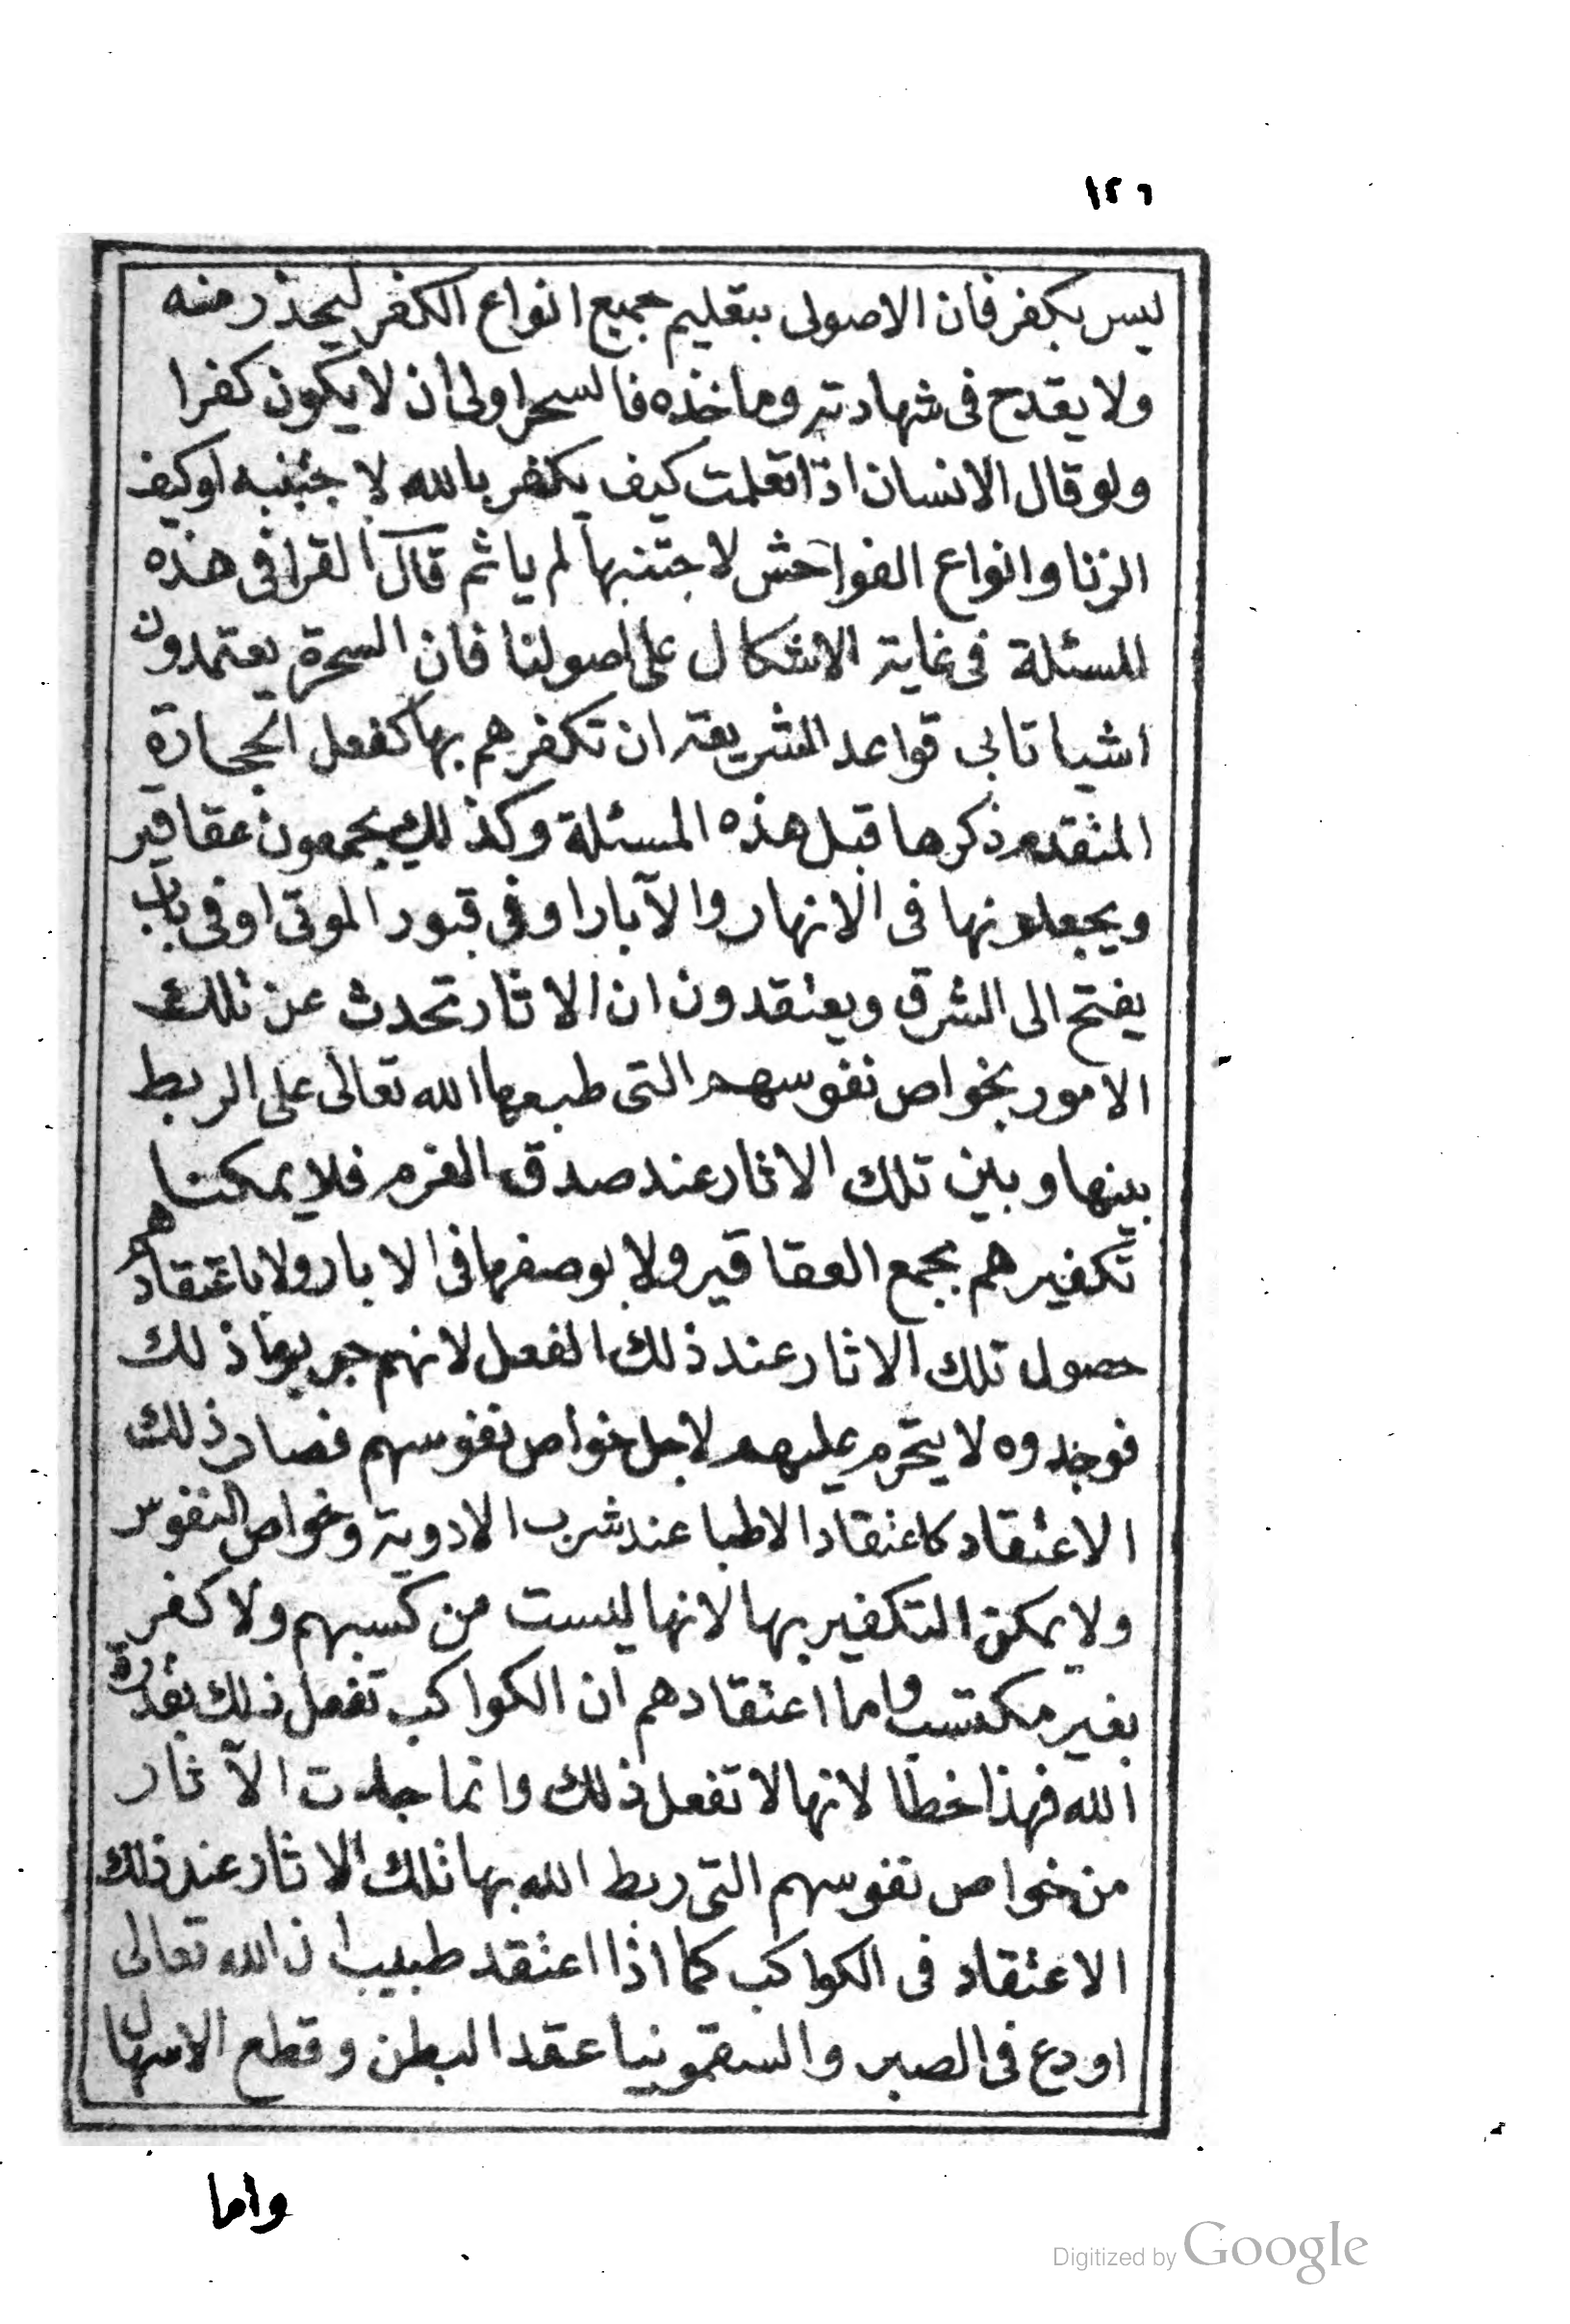 ١٢٦
ليس بكفر فان الاصولى بتعليم جميع انواع الكفر ليحذر منه
ولا يقدح فى شهادته وماخذه فالسحر اولى ان لا يكون كفرا
ولو قال الانسان اذا تعلمت كيف يكفر بالله لا جتنبه او كيف
الزنا وانواع الفواحش لا جتنبها لم ياثم قال القرافى هذه
المسئلة فى غاية الاشكال على اصولنا فان السحرة يعتمدون
اشيا تابى قواعد الشريعة ان تكفرهم بها كفعل الحجارة
المتقدم ذكرها قبل هذه المسئلة وكذلك يجمعون عقاقير
ويجعلونها فى الانهار والآبار او فى قبور الموتى او فى باب
يفتح الى الشرق ويعتقدون ان الاثار تحدث عن تلك
الامور بخواص نفوسهم التى طبعها الله تعالى على الربط
بينها وبين تلك الاثار عند صدق العزم فلا يمكننا
تكفيرهم بجمع العقاقير ولا بوضعها فى الابار ولا باعتقادهم
حصول تلك الاثار عند ذلك الفعل لانهم جربوا ذلك
فوجدوه لا يتخرم عليهم لاجل خواص نفوسهم فصار ذلك
الاعتقاد كاعتقاد الاطبا عند شرب الادوية وخواص النفوس
ولا يمكن التكفير بها لانها ليست من كسبهم ولا كفر
بغير مكتسب واما اعتقادهم ان الكواكب تفعل ذلك بقدرة
الله فهذا خطا لانها لا تفعل ذلك وانما جاءت الآثار
من خواص نفوسهم التى ربط الله بها تلك الاثار عند ذلك
الاعتقاد فى الكواكب كما اذا اعتقد طبيب ان الله تعالى
اودع فى الصبر والسقمونيا عقد البطن وقطع الاسهال
واما
Digitized by Google